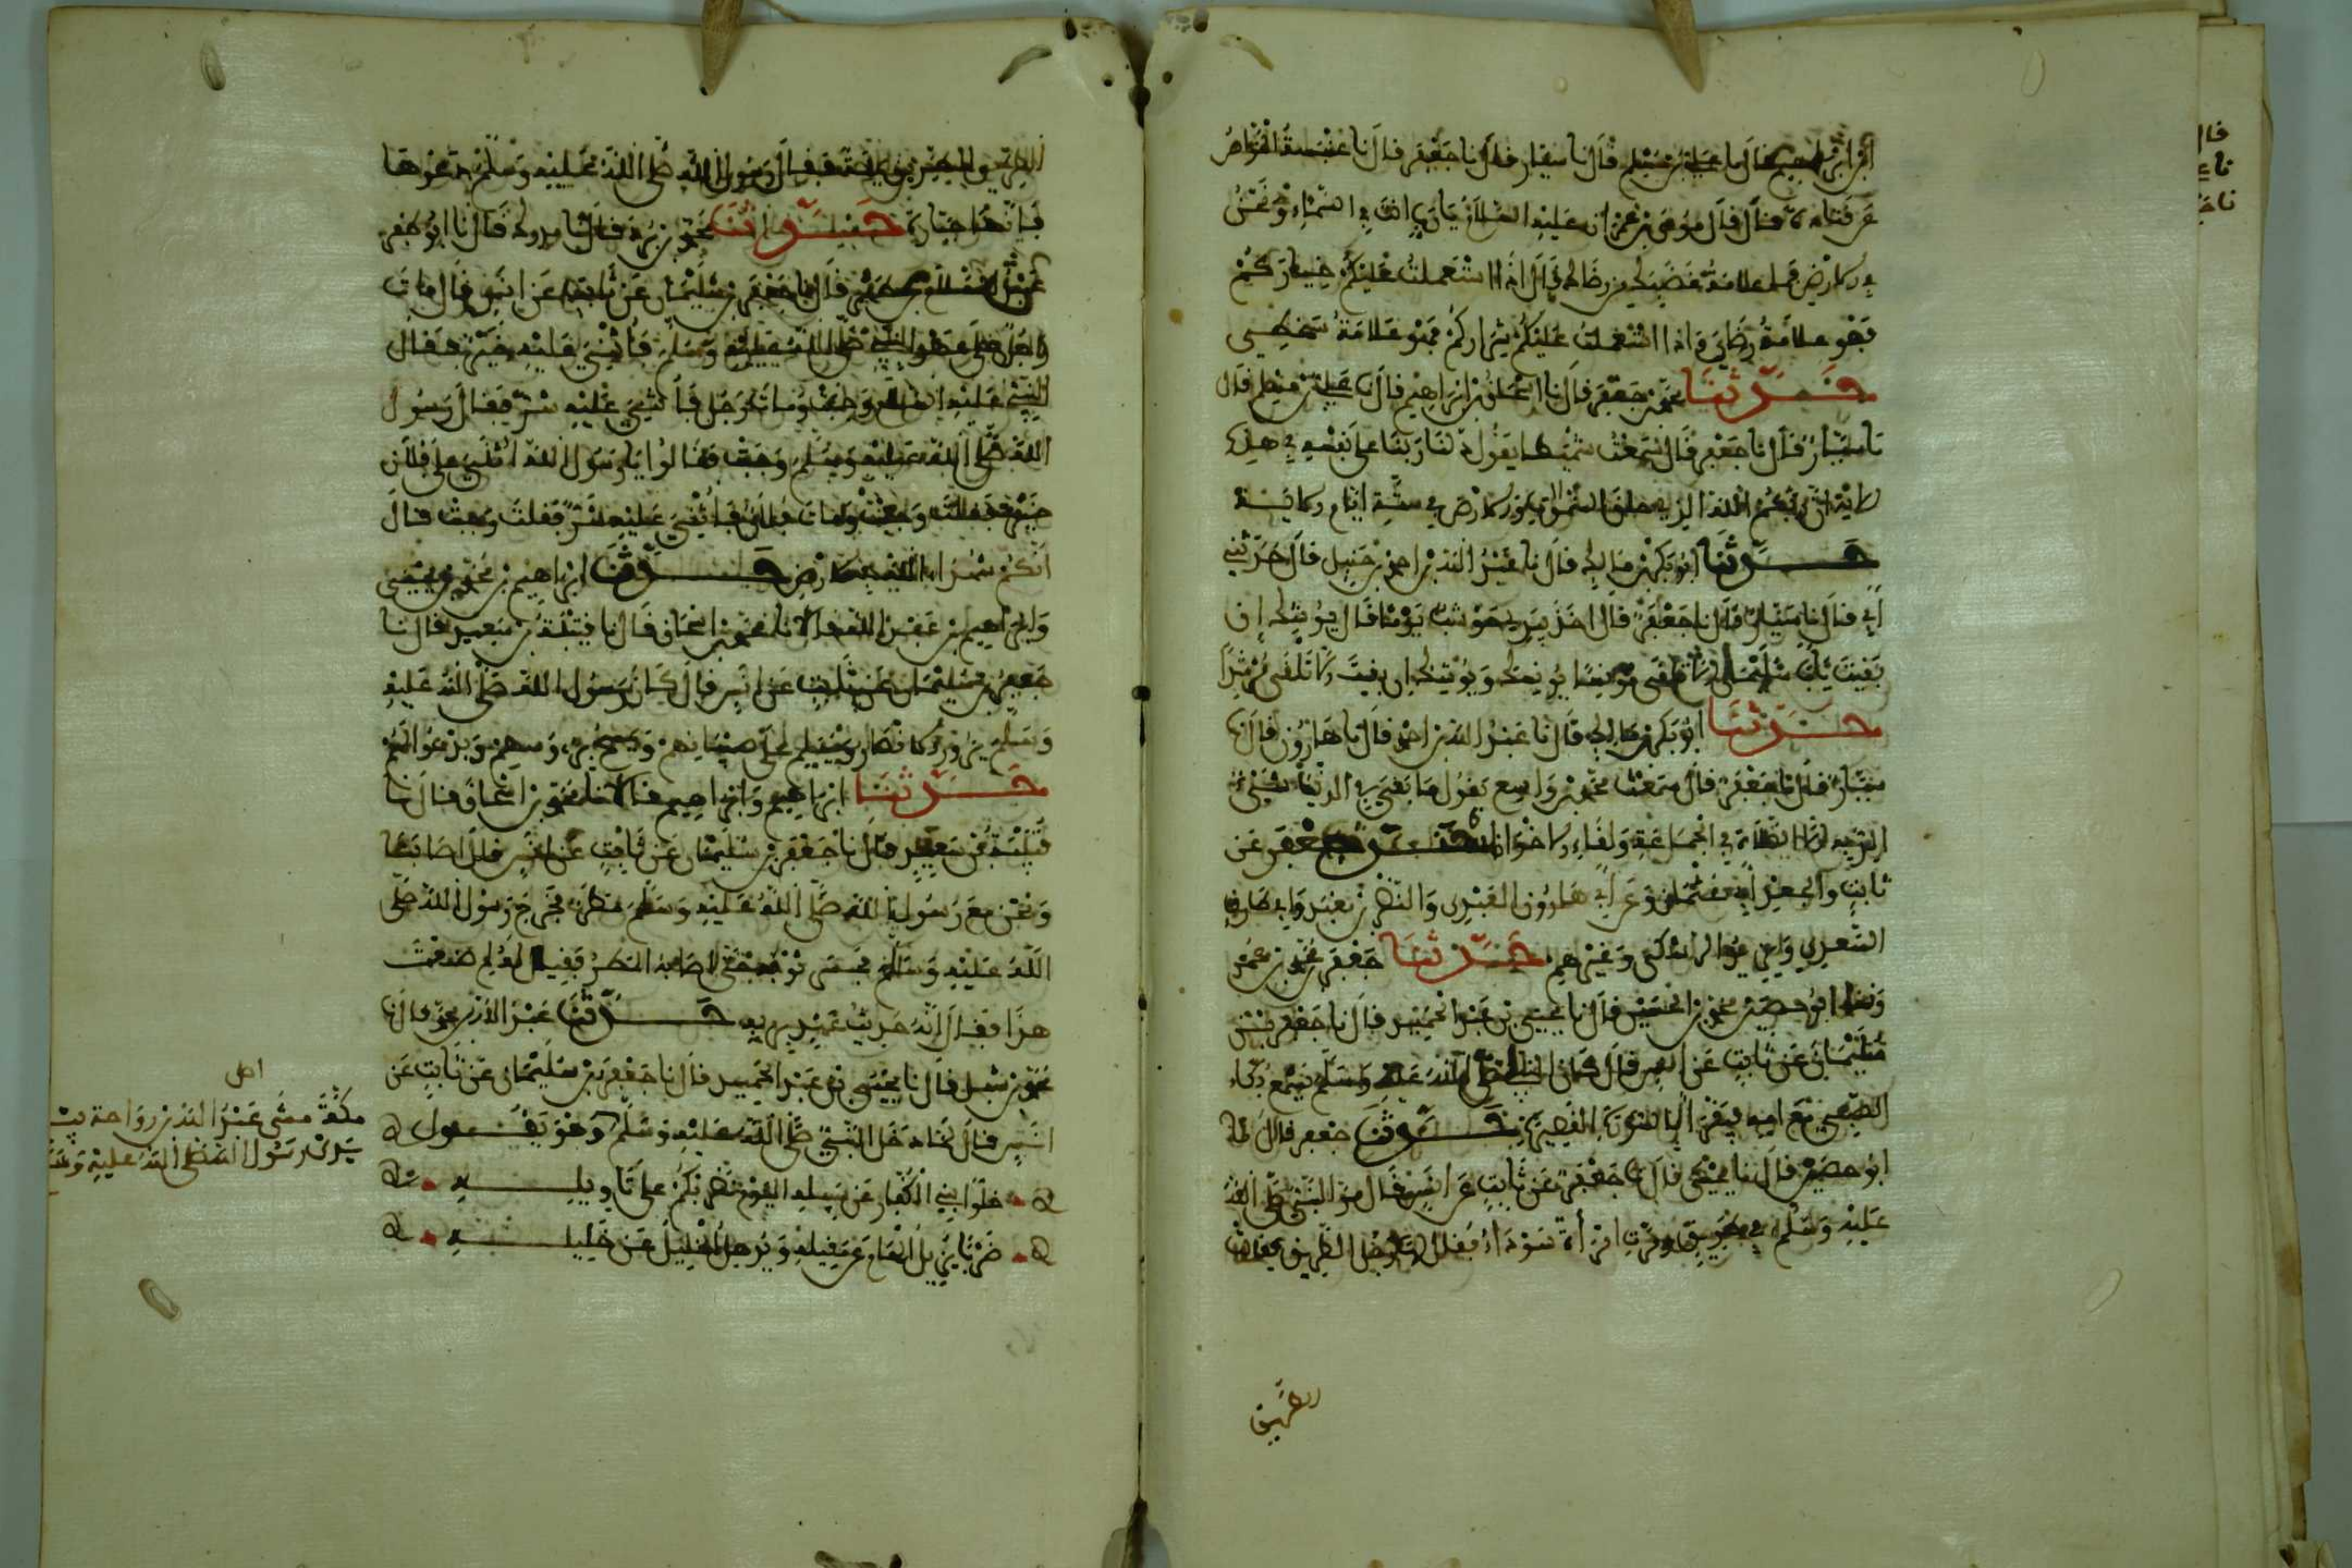 قال نا سيار قال نا جعفر قال نا عنبسة الخواص
عن قتادة قال قال موسى بن عمران عليه السلام يا رب انت في السماء ونحن
في الارض فما علامة غضبك من رضاك قال اذا استعملت عليكم خياركم
فهو علامة رضاي واذا استعملت عليكم شراركم فهو علامة سخطي
حدثنا محمد بن جعفر قال نا اسحاق بن ابراهيم قال نا علي بن مسلم قال
نا سيار قال نا جعفر قال سمعت شميطا يقول دلنا ربنا على نفسه في هذه
الاية ان ربكم الله الذي خلق السموات والارض في ستة ايام الاية
حدثنا ابو بكر بن مالك قال نا عبد الله بن احمد بن حنبل قال حدثني
ابي قال نا سيار قال نا جعفر قال اخذ بيدي حوشب يوما فقال يوشك ان
بقيت يا ابا سليمان الا تلقى مونسا يونسك ويوشك ان بقيت الا تلقى مرشدا
حدثنا ابو بكر بن مالك قال نا عبد الله بن احمد قال نا هارون قال نا
سيار قال نا جعفر قال سمعت محمد بن واسع يقول ما بقي في الدنيا شيء
الذ به الا الصلاة في الجماعة ولقاء الاخوان جعفر عن
ثابت والجعد ابي عثمان وعن ابي هارون العبدي والنضر بن معبد وابي طارق
السعدي وغيرهم حدثنا جعفر بن محمد بن عمرو
نا ابو حصين محمد بن الحسين قال نا يحيى بن عبد الحميد قال نا جعفر بن
سليمان عن ثابت عن انس قال كان النبي صلى الله عليه وسلم يسمع بكاء
الصبي مع امه فيقرا بالسورة القصيرة حدثنا جعفر قال نا
ابو حصين قال نا يحيى قال نا جعفر عن ثابت عن انس قال مر النبي صلى الله
عليه وسلم في طريق ومرت امراة سوداء فقال لها رجل الطريق فقالت
الطريق
الطريق فقال رسول الله صلى الله عليه وسلم دعوها
فانها جبارة حدثنا
عبد السلام قال نا جعفر بن سليمان عن ثابت عن انس قال مات
رجل على عهد النبي صلى الله عليه وسلم فاثني عليه خير فقال
النبي عليه السلام وجبت ومات رجل فاثني عليه شر فقال رسول
الله صلى الله عليه وسلم وجبت فقالوا يا رسول الله اثني على فلان
خير فقلت وجبت ومات فلان فاثني عليه شر فقلت وجبت قال
انكم شهداء الله في الارض حدثنا ابراهيم بن محمد بن يحيى
وابراهيم بن عبد الله قالا نا محمد بن اسحاق قال نا قتيبة بن سعيد قال نا
جعفر بن سليمان عن ثابت عن انس قال كان رسول الله صلى الله عليه
وسلم يزور الانصار ويسلم على صبيانهم ويمسح برءوسهم ويدعو لهم
حدثنا ابراهيم وابراهيم قالا نا محمد بن اسحاق قال نا
قتيبة بن سعيد قال نا جعفر بن سليمان عن ثابت عن انس قال اصابنا
ونحن مع رسول الله صلى الله عليه وسلم مطر فخرج رسول الله صلى
الله عليه وسلم فحسر ثوبه حتى اصابه المطر فقيل له لم صنعت
هذا فقال انه حديث عهد بربه حدثنا
محمد بن شبل قال نا يحيى بن عبد الحميد قال نا جعفر بن سليمان عن ثابت عن
انس قال لما دخل النبي صلى الله عليه وسلم وهو يقول
خلوا بني الكفار عن سبيله اليوم نضربكم على تاويله
ضربا يزيل الهام عن مقيله ويذهل الخليل عن خليله
اصل
مكة مشى عبد الله بن رواحة بين
يدي رسول الله صلى الله عليه وسلم